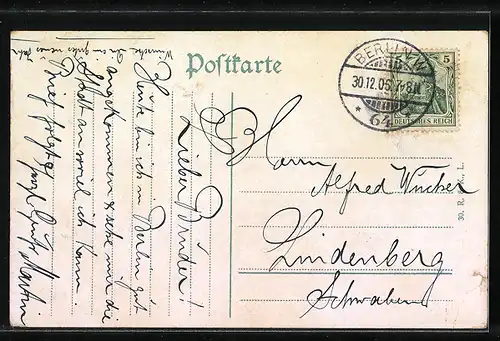 Postkarte
BERLIN W
30.12.05. 7-8 N
* 64
5
DEUTSCHES REICH
Herrn
Alfred Wucher
Lindenberg
Schwaben
30. R. & K., L.
Lieber Bruder!
Heute bin ich in Berlin gut
angekommen & sehe mir die
Stadt an soviel ich kann.
Brief folgt
Martin
Wünsche Dir ein gutes neues Jahr